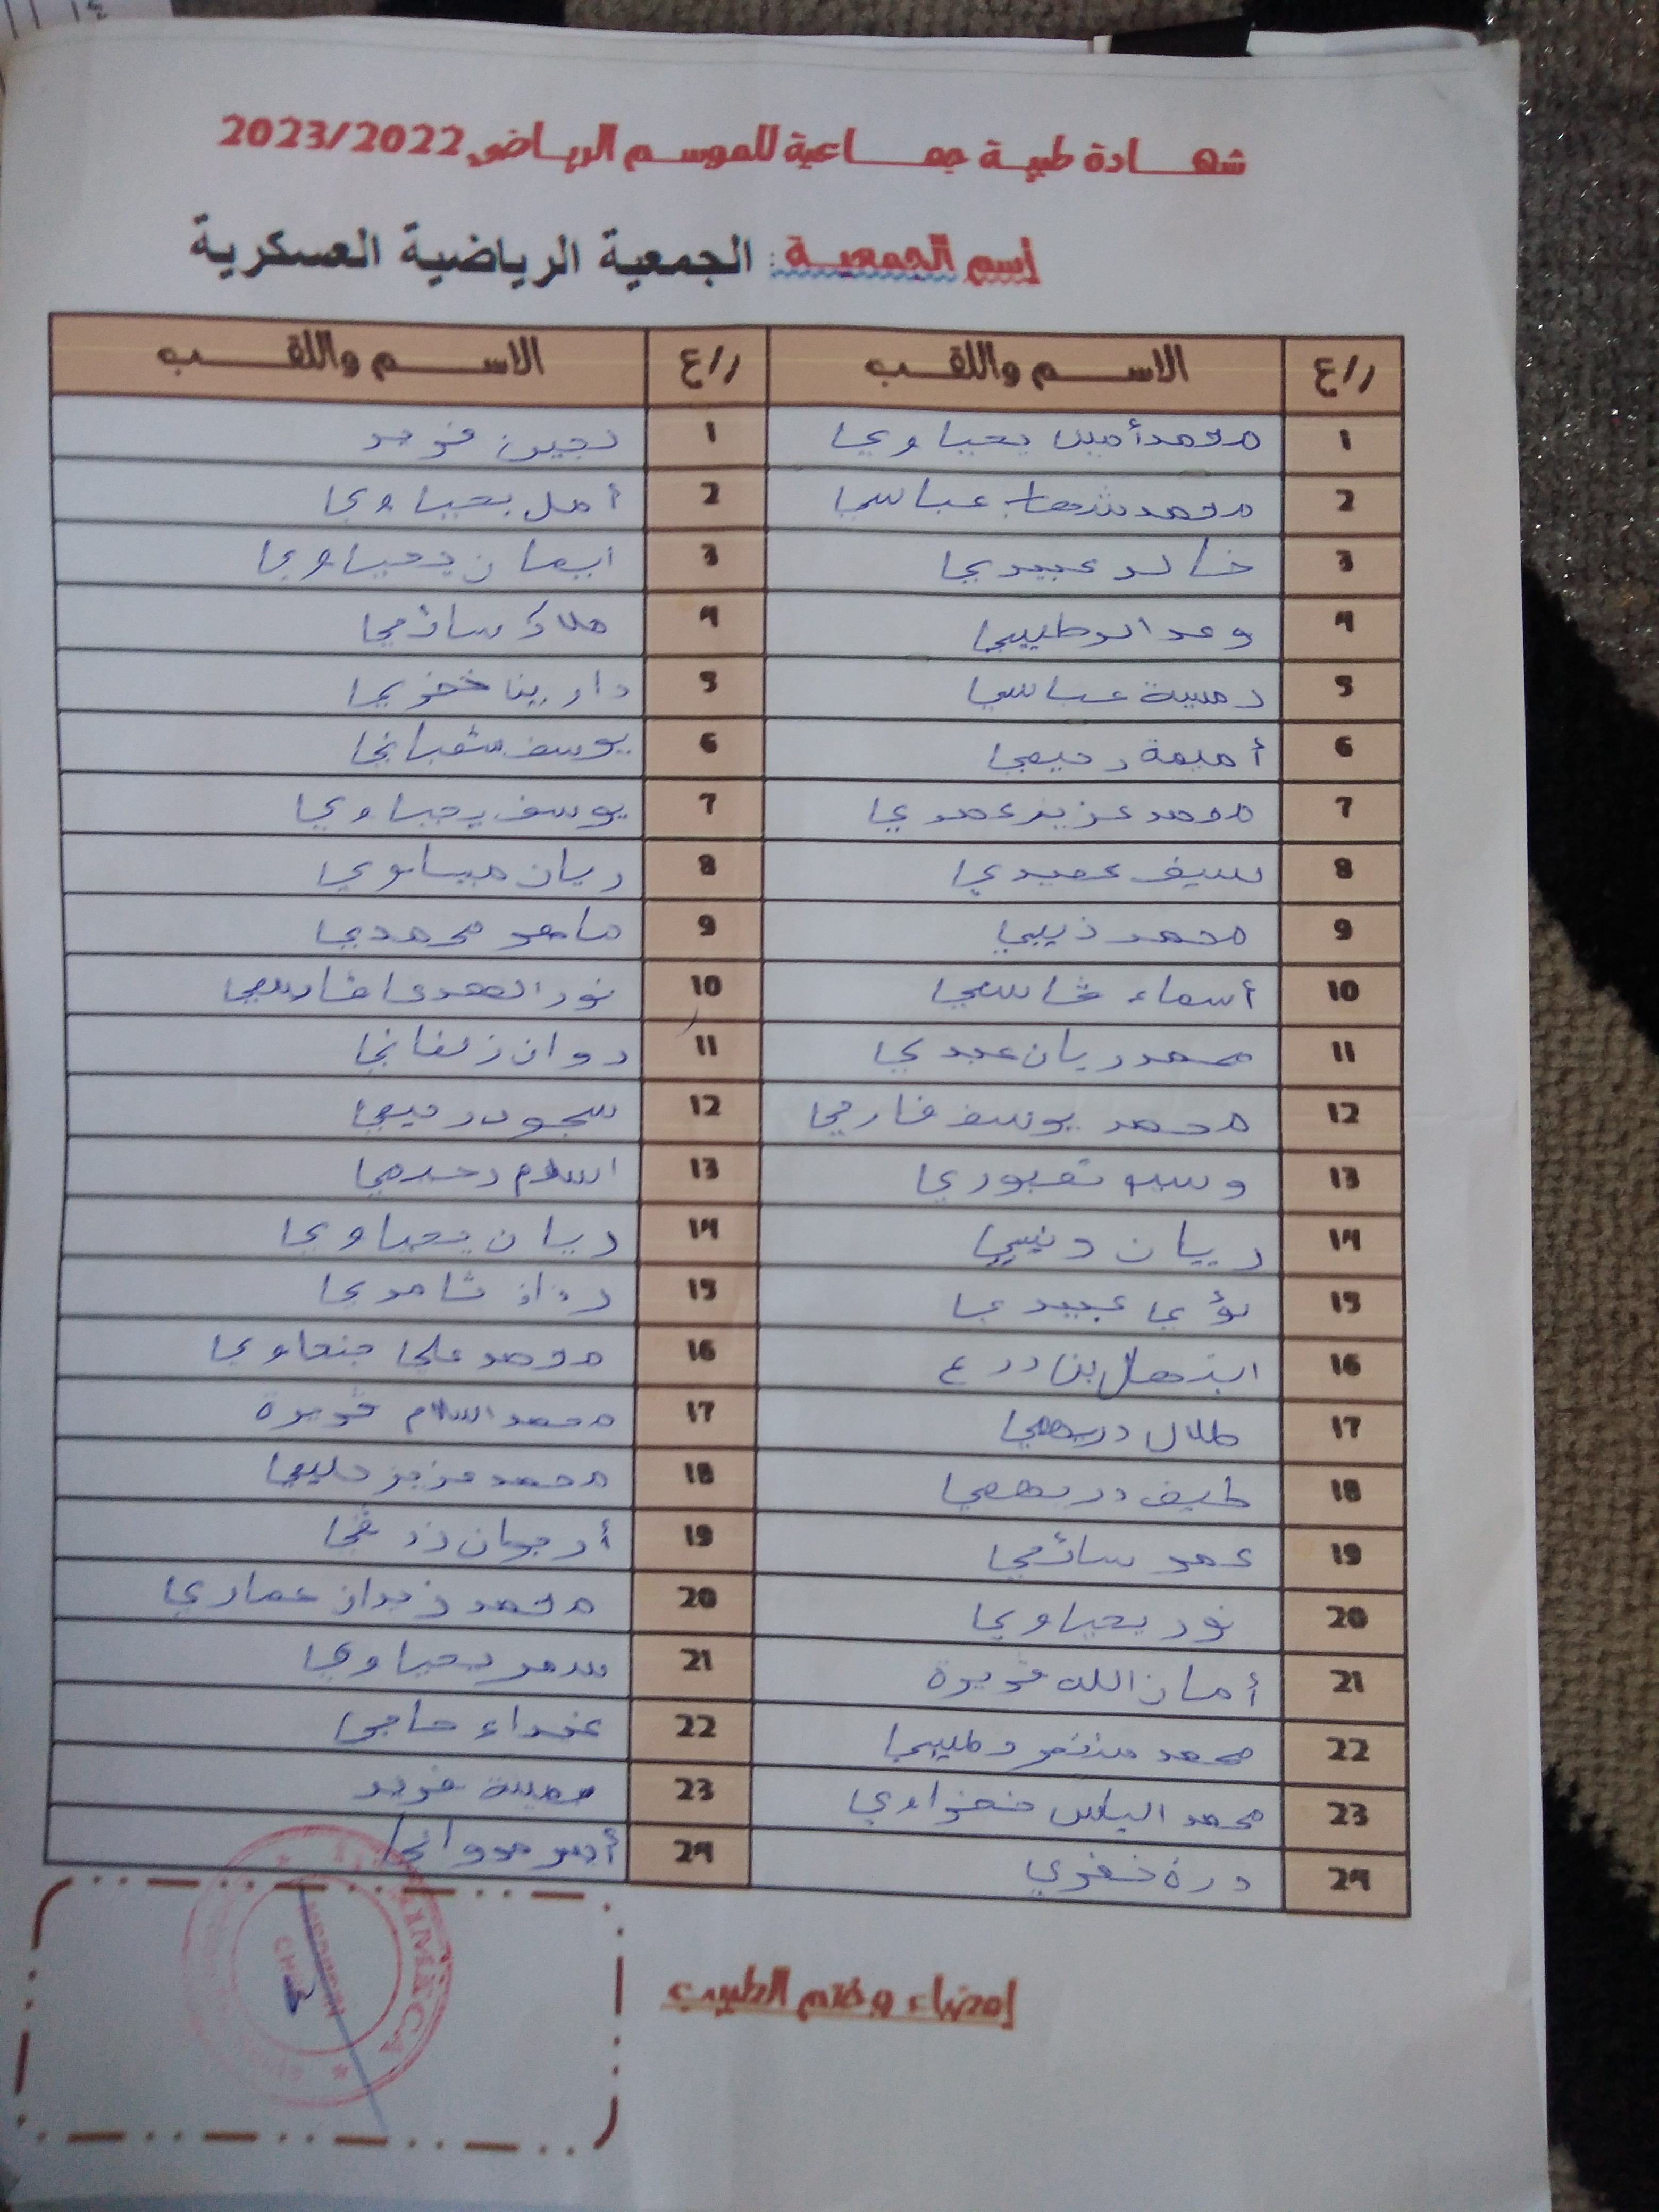 شهادة طبية جماعية للموسم الرياضي 2023/2022
إسم الجمعية : الجمعية الرياضية العسكرية
ر/ع الاسم واللقب ر/ع الاسم واللقب
1 محمد أمين يحياوي 1 لجين فريد
2 محمد شهاب عباسي 2 أمل يحياوي
3 خالد عبيدي 3 ايمان يحياوي
4 وعد الرطيبي 4 ملاك سائمي
5 عباسي 5 دارين خفوي
6 أميمة رحيمي 6 يوسف شعباني
7 محمد عزيز عمري 7 يوسف يحياوي
8 سيف عميدي 8 ريان ميساوي
9 محمد ذيبي 9 ماهر محمدي
10 أسماء قاسمي 10 نور الهدى قاسمي
11 محمد ريان عبدي 11 روان زلفاني
12 محمد يوسف فارحي 12 سجود رحيمي
13 13 اسلام
14 ريان 14 ريان يحياوي
15 لؤي عبيدي 15 ثامري
16 بن 16 محمد علي
17 طلال دريهمي 17 محمد اسلام قويرة
18 دريهمي 18 محمد عزيز حليمي
19 عمر سائمي 19 أرجوان زرقي
20 نور يحياوي 20 محمد زيدان عماري
21 أمان الله قويرة 21 سمر يحياوي
22 محمد منتصر 22 حاجي
23 محمد الياس نفزاوي 23 فريد
24 درة خفوي 24
إمضاء وختم الطبيب